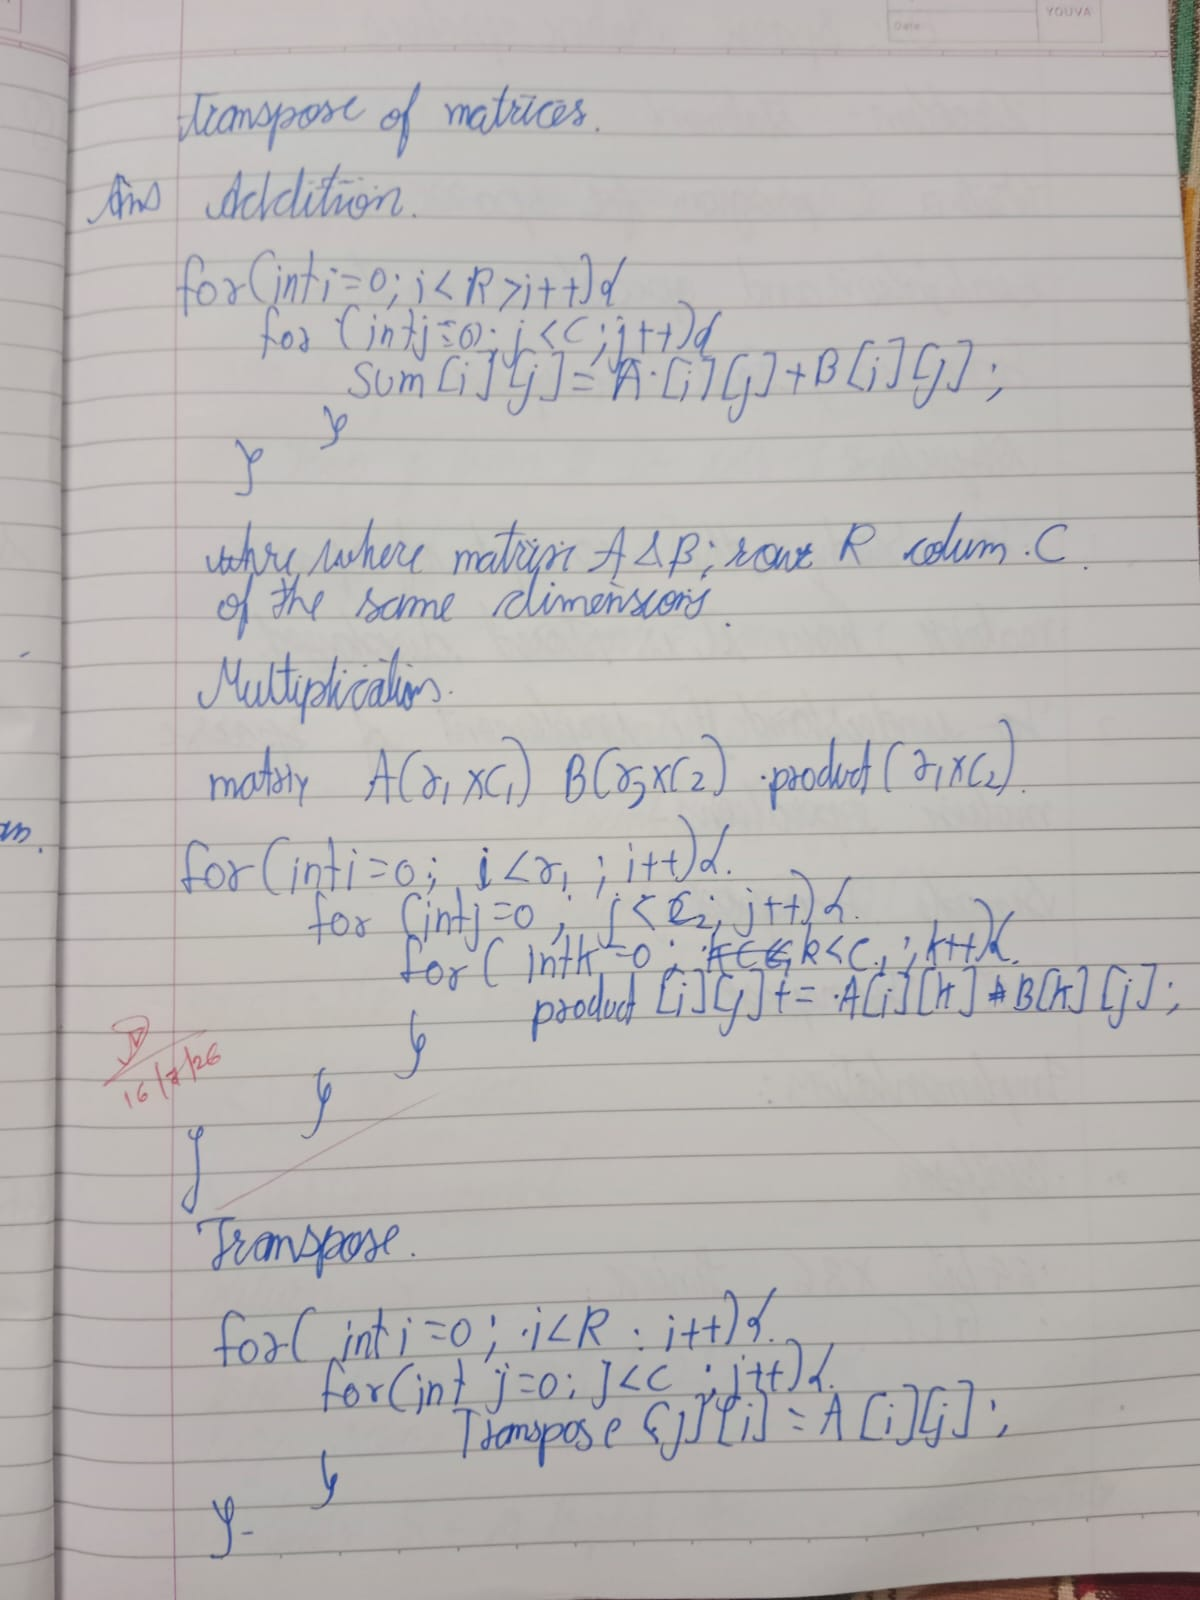 YOUVA
Date
Transpose of matrices.
Ans Addition.
for(int i=0; i<R>i++){
for (int j=0; j<C; j++){
Sum[i][j] = A.[i][j]+B[i][j];
}
}
where matrix A & B; row R colum.C.
of the same dimensions.
Multiplication.
matrix A(r₁ xC₁) B(r₂xC₂) .product(r₁xC₂).
for(int i=0; i<r₁ ; i++){.
for (int j=0 ; j<C₂; j++){.
for( int k=0 ; k<C₁ ; k++){.
product [i][j]+= .A[i][k] * B[k][j];
}
16/7/26
}
}
Transpose.
for( int i=0; .i<R : i++){.
for(int j=0; J<C ; j++){.
Transpose [j][i] = A[i][j];
}
}-